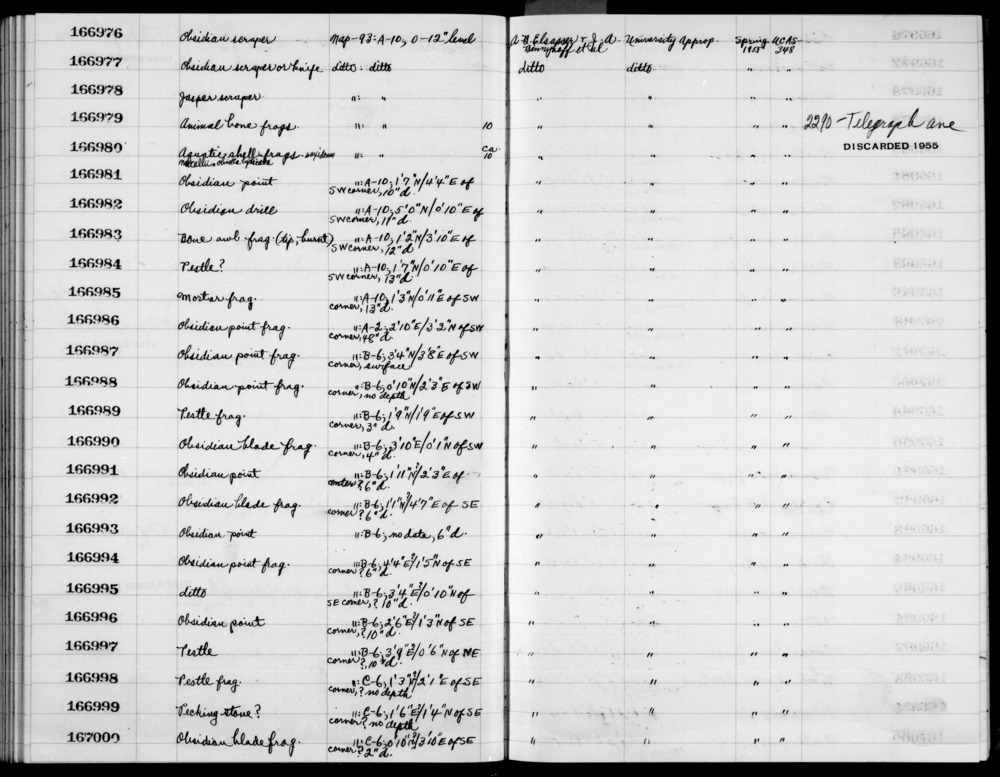 166976 Obsidian scraper Nap-93: A-10; 0-12" level A.B. Elsasser + J.A. Bennyhoff et al University Approp. Spring 1955 UCAS-348
166977 Obsidian scraper or knife ditto: ditto ditto ditto " "
166978 Jasper scraper ": " " " " "
166979 Animal bone frags. ": " 10 " " " " 2290-Telegraph ave
DISCARDED 1955
166980 Aquatic shell frags. ": " ca 10 " " " "
166981 Obsidian point ": A-10; 1'7"N/4'4"E of SW corner, 10"d. " " " "
166982 Obsidian drill ": A-10; 5'0"N/0'10"E of SW corner, 11"d. " " " "
166983 Bone awl frag. (tip, burnt) ": A-10; 1'2"N/3'10"E of SW corner, 12"d. " " " "
166984 Pestle? ": A-10; 1'7"N/0'10"E of SW corner, 13"d. " " " "
166985 Mortar frag. ": A-10; 1'3"N/0'11"E of SW corner, 13"d. " " " "
166986 Obsidian point frag. ": A-2; 2'10"E/3'2"N of SW corner, 48"d. " " " "
166987 Obsidian point frag. ": B-6; 3'4"N/3'8"E of SW corner, surface " " " "
166988 Obsidian point frag. ": B-6; 0'10"N/2'3"E of SW corner, no depth " " " "
166989 Pestle frag. ": B-6; 1'9"N/1'9"E of SW corner, 3"d. " " " "
166990 Obsidian blade frag. ": B-6; 3'10"E/0'1"N of SW corner, 4"d. " " " "
166991 Obsidian point ": B-6; 1'11"N/2'3"E of center? 6"d. " " " "
166992 Obsidian blade frag. ": B-6; 1'1"N/4'7"E of SE corner? 6"d. " " " "
166993 Obsidian point ": B-6; no data, 6"d. " " " "
166994 Obsidian point frag. ": B-6; 4'4"E?/1'5"N of SE corner? 6"d. " " " "
166995 ditto ": B-6; 3'4"E?/0'10"N of SE corner,? 10"d. " " " "
166996 Obsidian point ": B-6; 2'6"E?/1'3"N of SE corner,? 10"d. " " " "
166997 Pestle ": B-6; 3'9"E?/0'6"N of NE corner?, 10"d. " " " "
166998 Pestle frag. ": C-6; 1'3"N?/2'1"E of SE corner,? no depth " " " "
166999 Pecking stone? ": C-6; 1'6"E?/1'4"N of SE corner? no depth " " " "
167000 Obsidian blade frag. ": C-6; 0'10"N?/3'10"E of SE corner? 2"d. " " " "